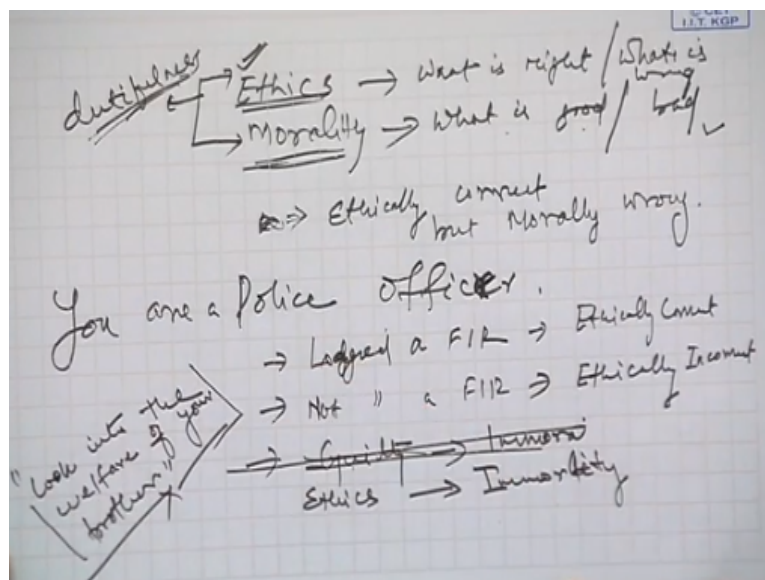 © CET
I.I.T. KGP
dutifulness
Ethics → What is right / What is wrong
Morality → What is good / bad
⇒ Ethically correct
but Morally wrong.
You are a Police Officer.
→ Lodged a FIR → Ethically Correct
→ Not " a FIR → Ethically Incorrect
→ Guilty → Immoral
Ethics → Immorality
"Look into the
welfare of your
brother"